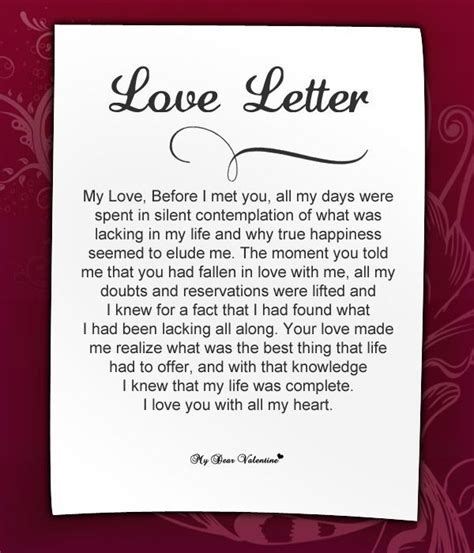 Love Letter
My Love, Before I met you, all my days were
spent in silent contemplation of what was
lacking in my life and why true happiness
seemed to elude me. The moment you told
me that you had fallen in love with me, all my
doubts and reservations were lifted and
I knew for a fact that I had found what
I had been lacking all along. Your love made
me realize what was the best thing that life
had to offer, and with that knowledge
I knew that my life was complete.
I love you with all my heart.
My Dear Valentine